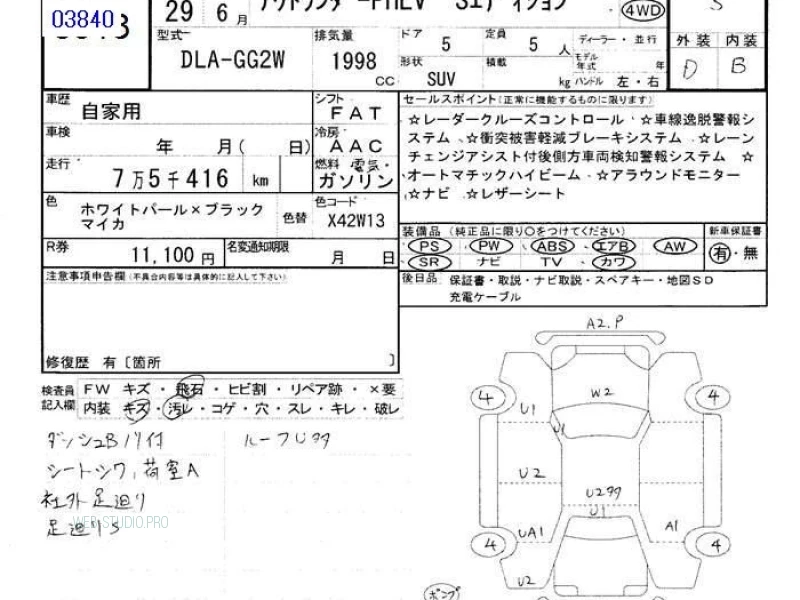 03840
29 6月
4WD
S
型式 排気量 ドア 定員 ディーラー・並行 外装 内装
DLA-GG2W 1998 CC 5 5 人 モデル年式 年
形状 SUV 積載 kg ハンドル 左・右 D B
車歴 自家用 シフト FAT
車検 年 月( 日) 冷房 AAC
走行 7万5千416 km 燃料 電気・ガソリン
色 ホワイトパール×ブラックマイカ 色替 色コード X42W13
R券 11,100円 名変通知期限 月 日
セールスポイント(正常に機能するものに限ります)
☆レーダークルーズコントロール ☆車線逸脱警報シ
ステム ☆衝突被害軽減ブレーキシステム ☆レーン
チェンジアシスト付後側方車両検知警報システム ☆
オートマチックハイビーム ☆アラウンドモニター
☆ナビ ☆レザーシート
装備品 (純正品に限り○をつけてください) 新車保証書
PS PW ABS エアB AW 有・無
SR ナビ TV カワ
後日品 保証書・取説・ナビ取説・スペアキー・地図SD
充電ケーブル
注意事項申告欄(不具合内容等は具体的に記入して下さい)
修復歴 有〔箇所 〕
検査員記入欄 FW キズ・飛石・ヒビ割・リペア跡・×要
内装 キズ・汚レ・コゲ・穴・スレ・キレ・破レ
ダッシュBノリ付 ルーフUタタ
シートシワ,荷室A
社外足廻り
足廻りS
WEB-STUDIO.PRO
A2.P
4 W2 4
U1
U1
U2
U2タタ
U1
UA1 A1
4 4
U2
ポンプ